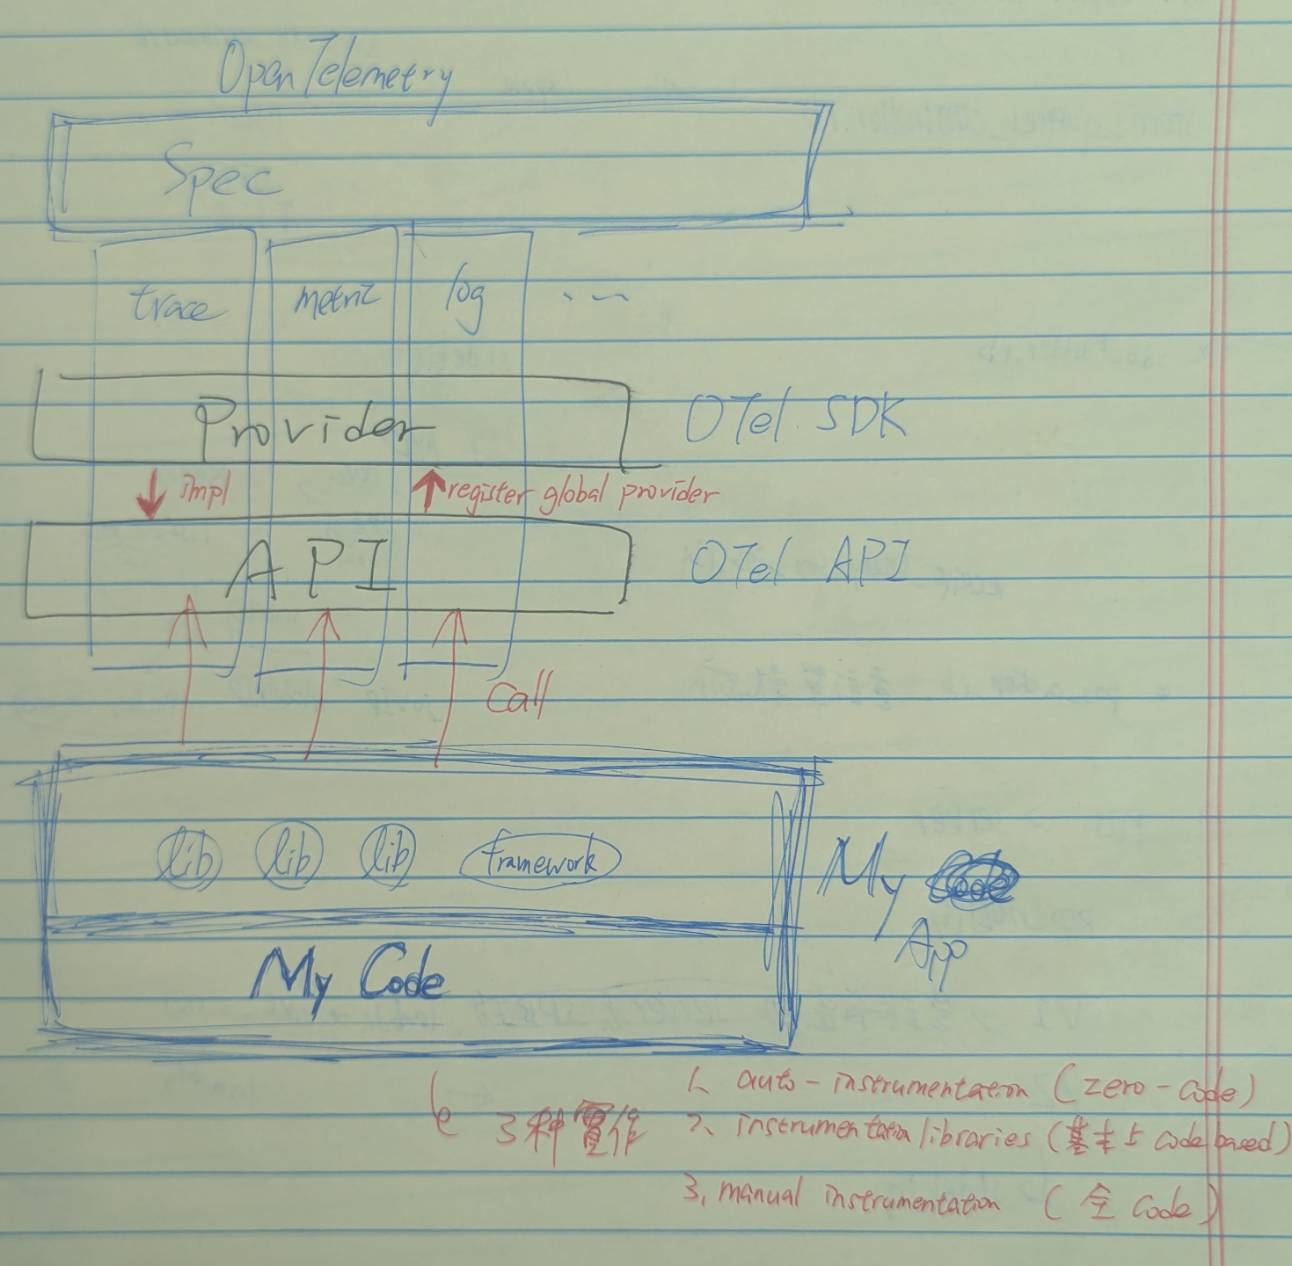 OpenTelemetry
Spec
trace metric log ...
Provider OTel SDK
impl register global provider
API OTel API
Call
lib lib lib framework
My Code
App
My Code
3種實作
1. auto-instrumentation (zero-code)
2. instrumentation libraries (基本上 code based)
3. manual instrumentation (全 code)